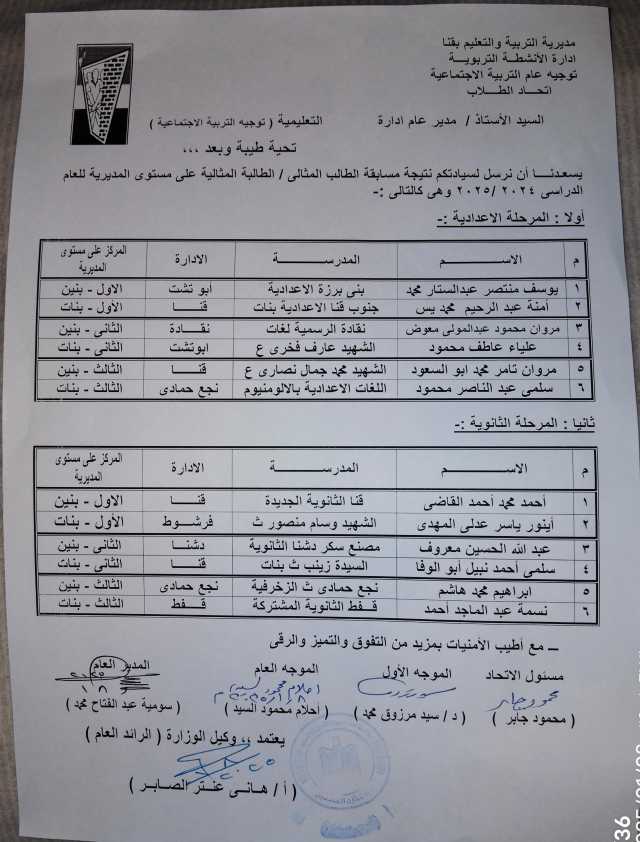 مديرية التربية والتعليم بقنا
ادارة الأنشطة التربويـــة
توجيه عام التربية الاجتماعية
اتحاد الطـــلاب
السيد الأستاذ / مدير عام ادارة التعليمية ( توجيه التربية الاجتماعية )
تحية طيبة وبعد ،،،
يسعدنـــا أن نرسل لسيادتكم نتيجة مسابقة الطالب المثالى / الطالبة المثالية على مستوى المديرية للعام
الدراسى ٢٠٢٤ /٢٠٢٥ وهى كالتالى :-
أولا : المرحلة الاعدادية :-
م الاســـــــم المدرســـــــة الادارة المركز على مستوى المديرية
١ يوسف منتصر عبدالستار محمد بنى برزة الاعدادية أبو تشت الاول - بنين
٢ أمنة عبد الرحيم محمد يس جنوب قنا الاعدادية بنات قنـــا الأول - بنات
٣ مروان محمود عبدالمولى معوض نقادة الرسمية لغات نقـــادة الثانى - بنين
٤ علياء عاطف محمود الشهيد عارف فخرى ع ابوتشت الثانى - بنات
٥ مروان تامر محمد ابو السعود الشهيد محمد جمال نصارى ع قنـــا الثالث - بنين
٦ سلمى عبد الناصر محمود اللغات الاعدادية بالالومنيوم نجع حمادى الثالث - بنات
ثانيا : المرحلة الثانوية :-
م الاســـــــم المدرســـــــة الادارة المركز على مستوى المديرية
١ أحمد محمد أحمد القاضى قنا الثانوية الجديدة قنـــا الاول - بنين
٢ أينور ياسر عدلى المهدى الشهيد وسام منصور ث فرشـــوط الأول - بنات
٣ عبد الله الحسين معروف مصنع سكر دشنا الثانوية دشنـــا الثانى - بنين
٤ سلمى أحمد نبيل أبو الوفا السيدة زينب ث بنات قنـــا الثانى - بنات
٥ ابراهيم محمد هاشم نجع حمادى ث الزخرفية نجع حمادى الثالث - بنين
٦ نسمة عبد الماجد أحمد قـفـط الثانوية المشتركة قـفـط الثالث - بنات
ــ مع أطيب الأمنيات بمزيد من التفوق والتميز والرقى
مسئول الاتحاد الموجه الأول الموجه العام المدير العام
محمود جابر أحلام محمود السيد
( محمود جابر ) ( د/ سيد مرزوق محمد ) ( أحلام محمود السيد ) ( سومية عبد الفتاح محمد )
يعتمد ،، وكيل الوزارة ( الرائد العام )
( أ / هـانـى عنـتـر الصـابـر )